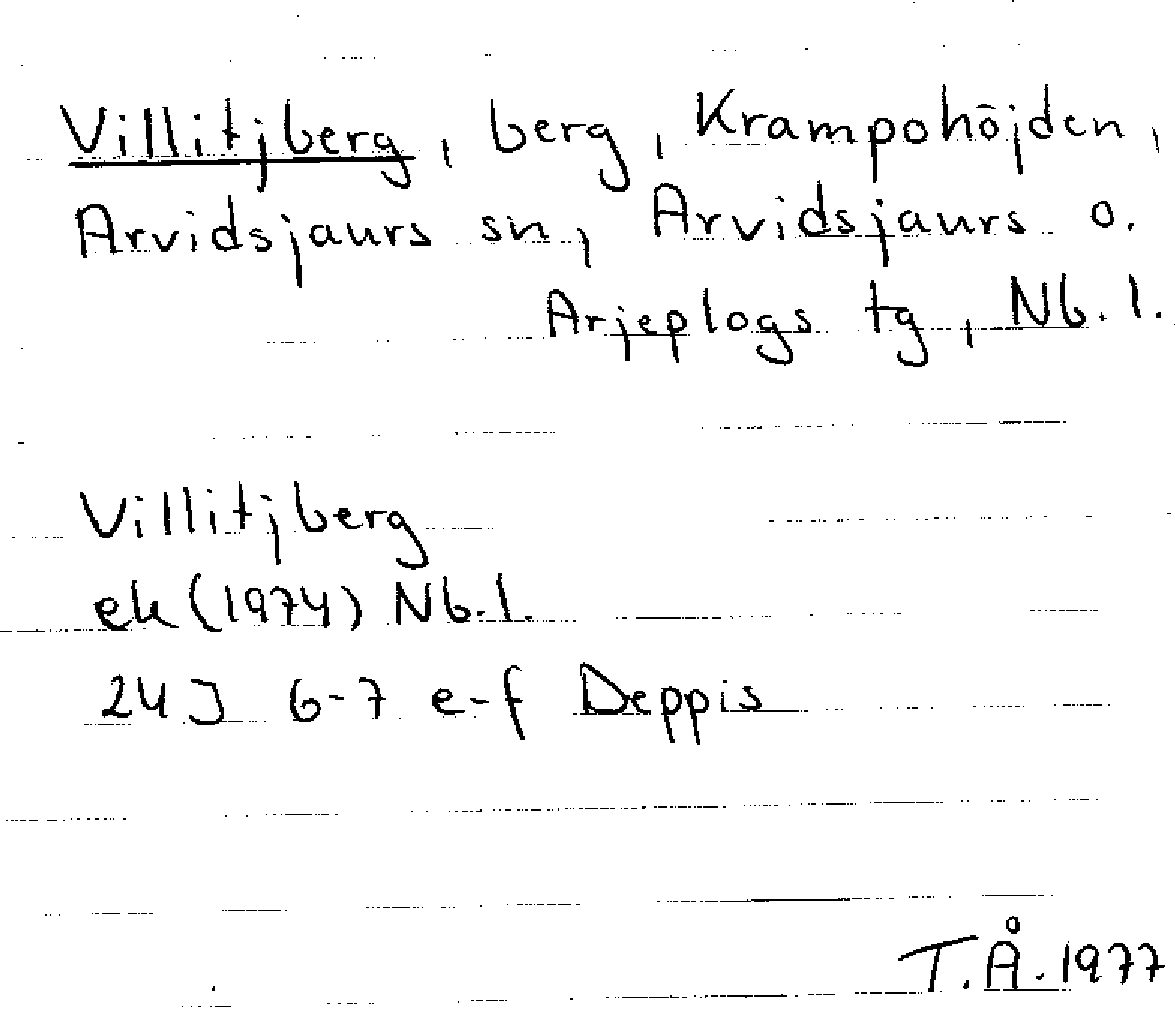 Villitjberg, berg, Krampohöjden,
Arvidsjaurs sn, Arvidsjaurs o.
Arjeplogs tg, Nb. l.
Villitjberg
ek (1974) Nb. l.
24J 6-7 e-f Deppis
T.Å. 1977